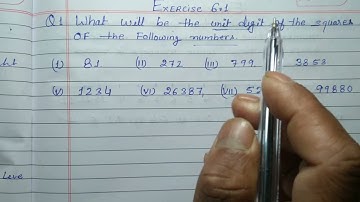 Exercise 6.1
Q1 What will be the unit digit of the squares
OF the Following numbers.
(I) 81 (II) 272 (III) 799 3853
(V) 1234 (VI) 26387 (VII) 99880